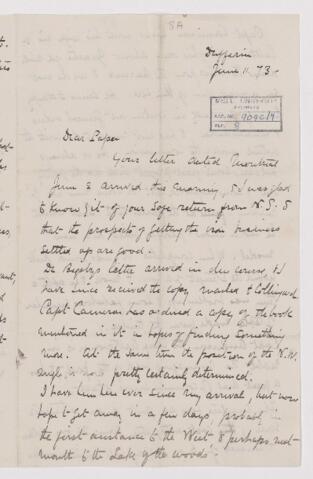 8A
Dufferin
June 11. 73.
McGILL UNIVERSITY
ACC. NO.
REF. 8
Dear Papa
Your letter dated Montreal
June 2 arrived this morning, & I was glad
to know of your safe return from N.S. &
that the prospects of getting the iron business
settled up are good.
Dr Bigsbys letter arrived in due course, & I
have since received the copy mailed
Capt Cameron has ordered a copy of the book
mentioned in it in hopes of finding something
more. At the same time the position of the N.W.
angle is now pretty certainly determined.
I have been here ever since my arrival, but now
hope to get away in a few days, probably in
the first instance to the West, & perhaps next
month to the Lake of the woods.